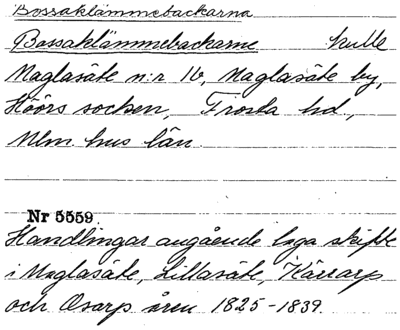 Bossaklämmebackarna
Bossaklämmebackarne kulle
Maglasäte n:r 16, Maglasäte by,
Höörs socken, Frosta hd.,
Mlm. hus län.
Nr 5559.
Handlingar angående laga skifte
i Maglasäte, Lillasäte, Kärrarp
och Osarp åren 1825-1839.